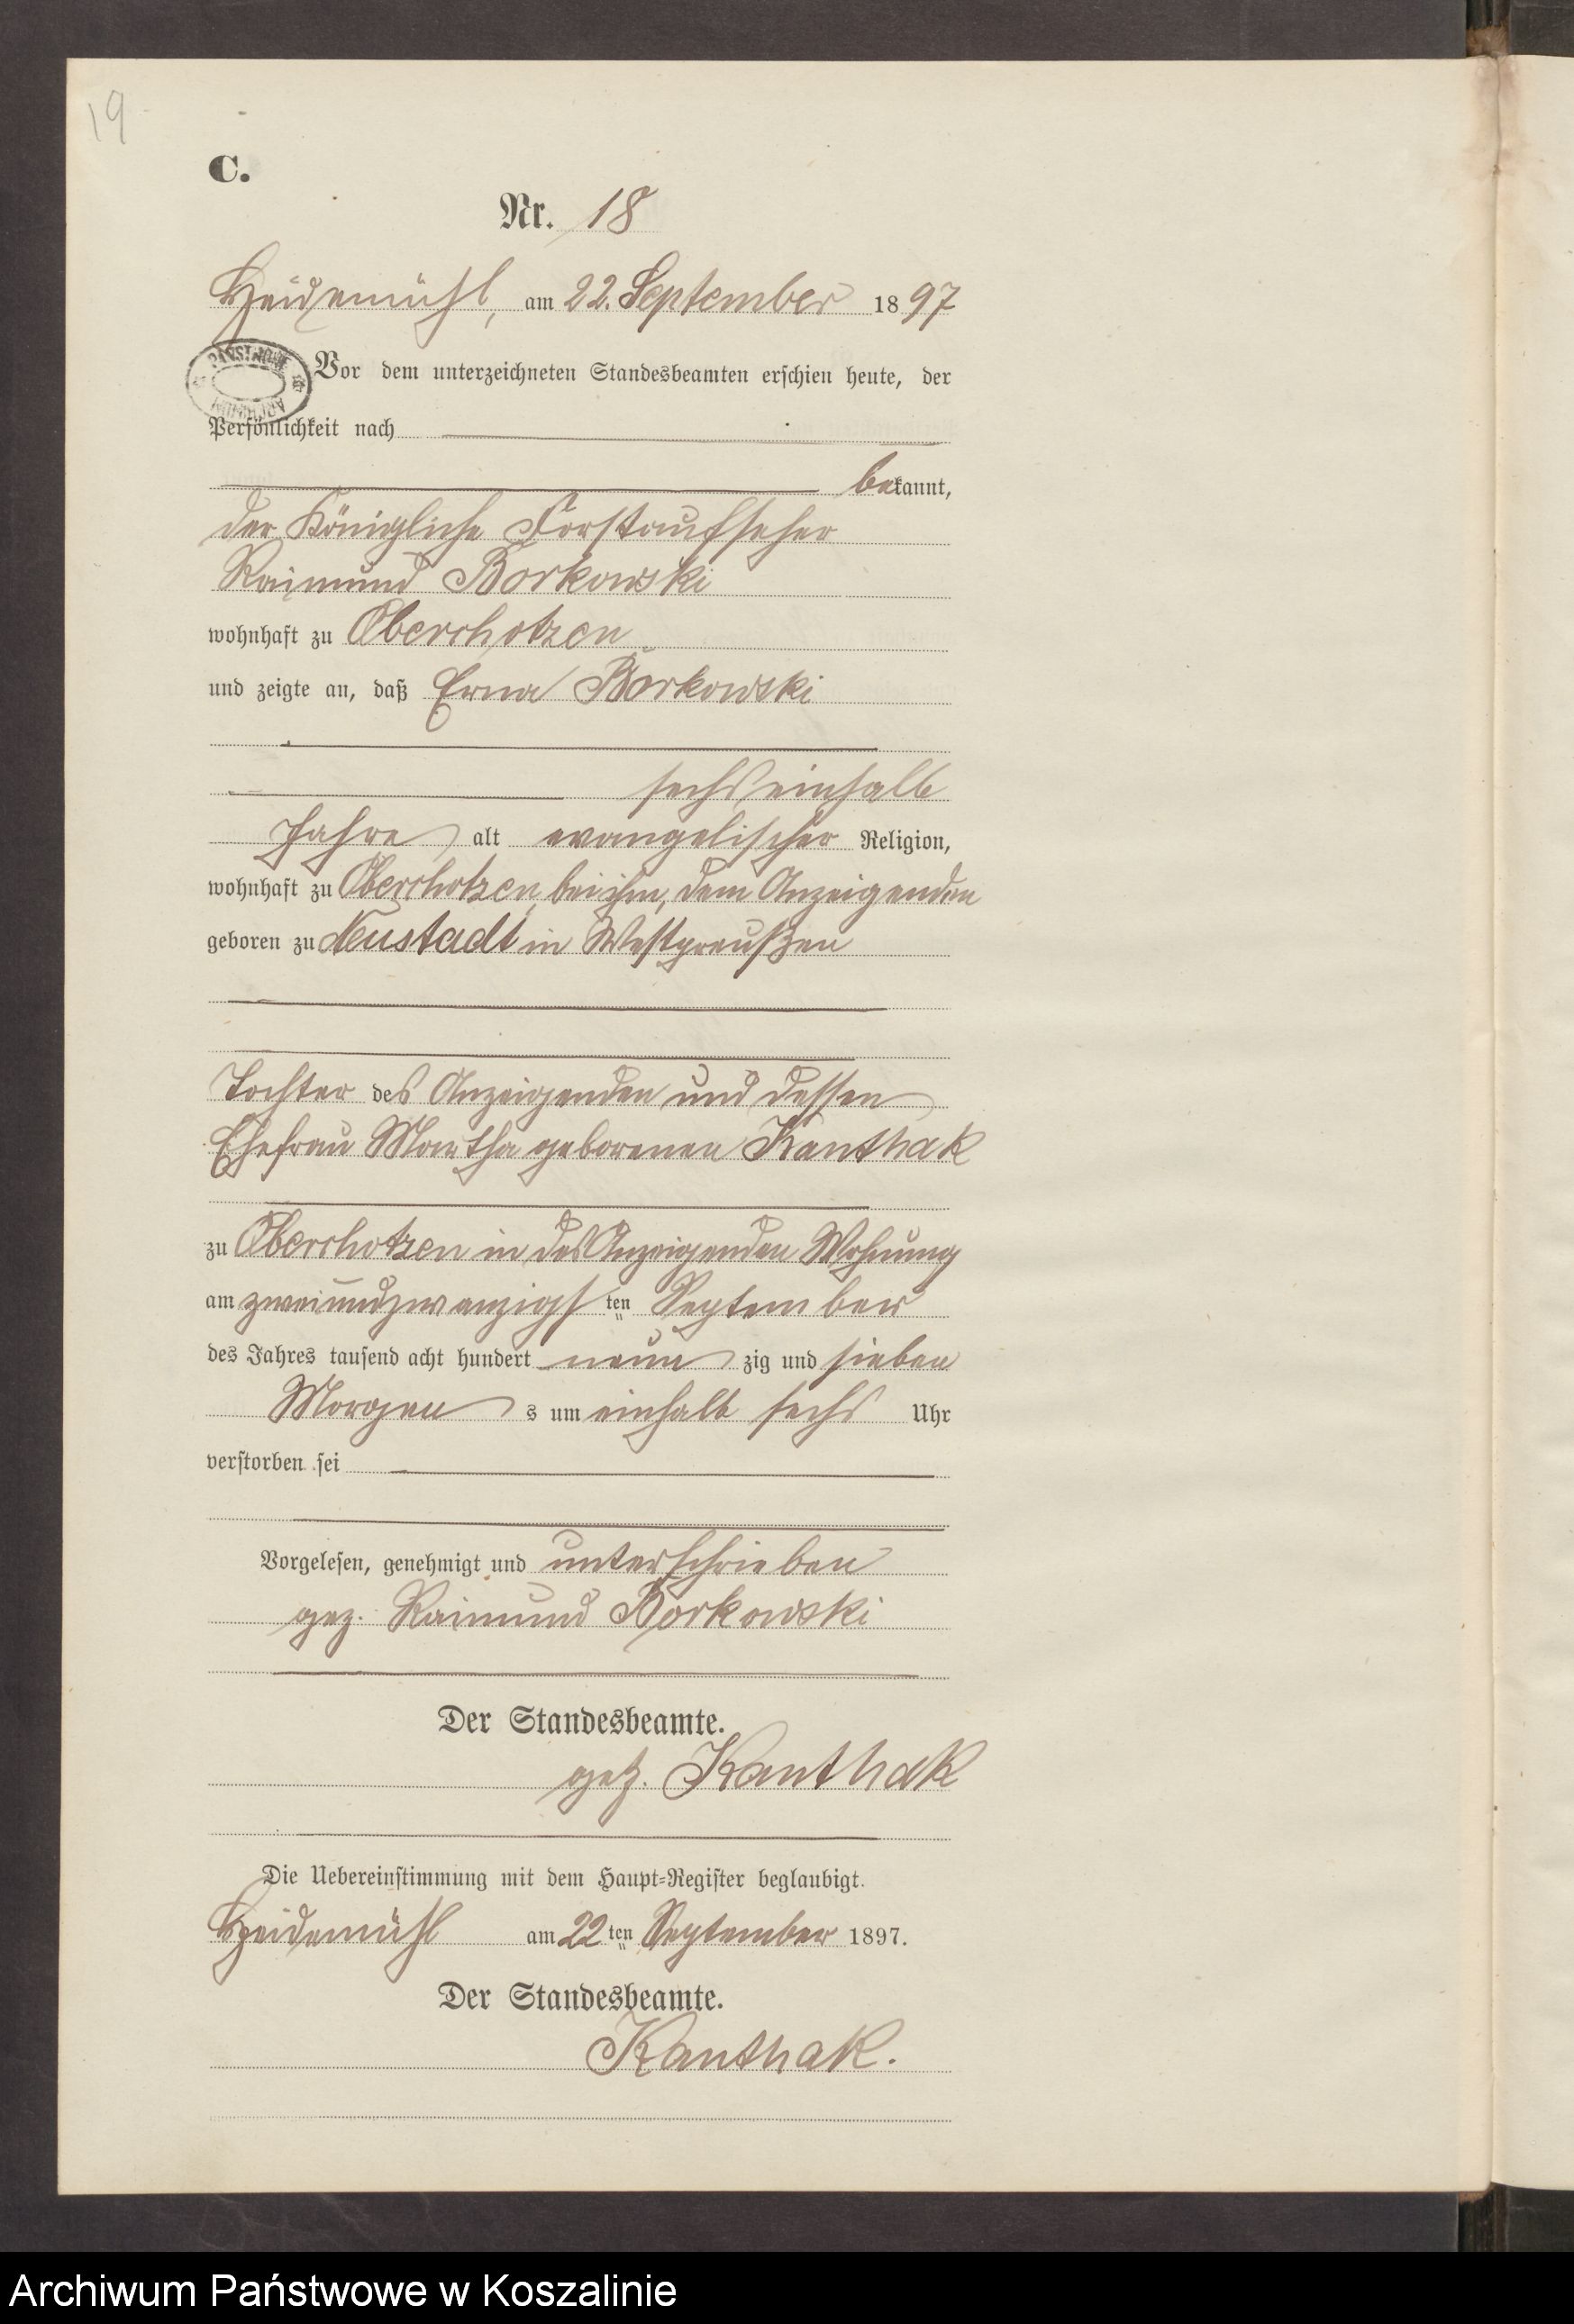 19
C.
Nr. 18
Heidemühl, am 22. September 1897
PAŃSTWOWE
ARCHIWUM
Vor dem unterzeichneten Standesbeamten erschien heute, der
Persönlichkeit nach
bekannt,
der Königliche Forstaufseher
Raimund Borkowski
wohnhaft zu Oberchotzen
und zeigte an, daß Erna Borkowski
sechs einhalb
Jahre alt evangelischer Religion,
wohnhaft zu Oberchotzen, bei ihm, dem Anzeigenden
geboren zu Neustadt in Westpreußen
Tochter des Anzeigenden und dessen
Ehefrau Martha geborenen Kanthak
zu Oberchotzen in des Anzeigenden Wohnung
am zweiundzwanzigsten September
des Jahres tausend acht hundert neunzig und sieben
Morgens um einhalb sechs Uhr
verstorben sei
Vorgelesen, genehmigt und unterschrieben
gez. Raimund Borkowski
Der Standesbeamte.
gez. Kanthak
Die Uebereinstimmung mit dem Haupt-Register beglaubigt.
Heidemühl am 22ten September 1897.
Der Standesbeamte.
Kanthak.
Archiwum Państwowe w Koszalinie